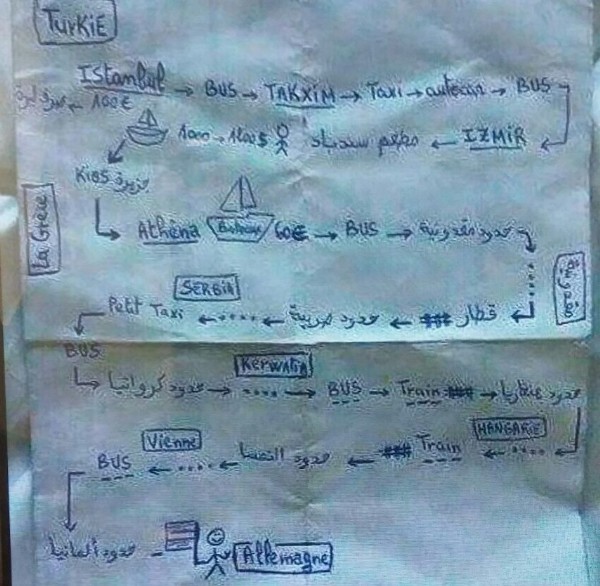 TurkiE
IStanbul → BUS → TAKXiM → Taxi → autocar → BUS
100€
IZMiR ← مطعم سندباد 1000 → 1200$
جزيرة KiOS
La Grèce
Athèna 60€ → BUS → حدود مقدونية
مقدونية
قطار ← حدود صربية ←
SERBiA
Petit Taxi
BUS
حدود كرواتيا →
KerwaTia
→ BUS → Train → حدود هنغاريا
HANGARiE
← Train ← حدود النمسا ←
Vienne
BUS
حدود ألمانيا
Allemagne